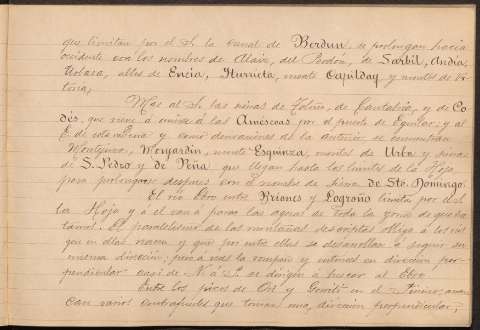 que limitan por el S. la canal de Berdun, se prolongan hacia
occidente con los nombres de Alaiz, del Perdon, de Sarbil, Andia,
altos de Encia, Iturrieta, monte Capilduy y montes de Vi-
toria,
Mas al S. las sierras de Toloño, de Cantabria, y de Co-
dés, que viene á unirse á las Améscoas por el puerto de Eguilaz, y al
E. de esta sierra y como derivaciones de la anterior se encuentran
Montejurra, Monjardin, monte Esquinza, montes de Urba y sierras
de S. Pedro y de Peña, que llegan hasta los limites de la Hoja
para prolongarse despues con el nombre de sierra de Sto. Domingo.
El rio Ebro entre Briones y Logroño limita por el S.
la Hoja y á él van á parar las aguas de toda la zona de que tra-
tamos. El paralelismo de las montañas descritas obliga á los rios
que en ellas nacen y que por entre ellas se desarrollan á seguir su
misma direccion; pero á veces la rompen y entonces en direccion per-
pendicular casi de N. á S. se dirigen á buscar al Ebro.
Entre los picos de Ori y en el Pirineo, arran-
can varios contrafuertes que toman una direccion perpendicular,